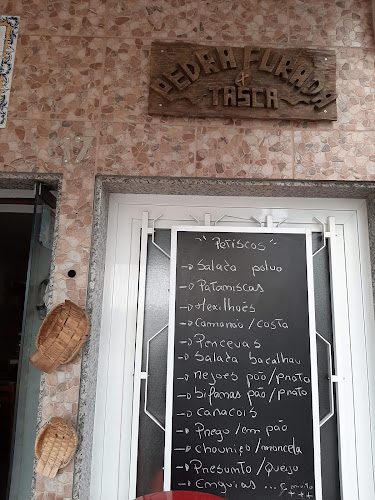 PEDRA FURADA
TASCA
17
"Petiscos"
→ Salada polvo
→ Pataniscas
→ Mexilhões
→ Camarão/costa
→ Percevas
→ Salada bacalhau
→ mejoes pão/prato
→ bifanas pão/prato
→ Caracois
→ Prego/em pão
→ chouriço/morcela
→ Presunto/Queijo
→ Enguias ... E muito
+++